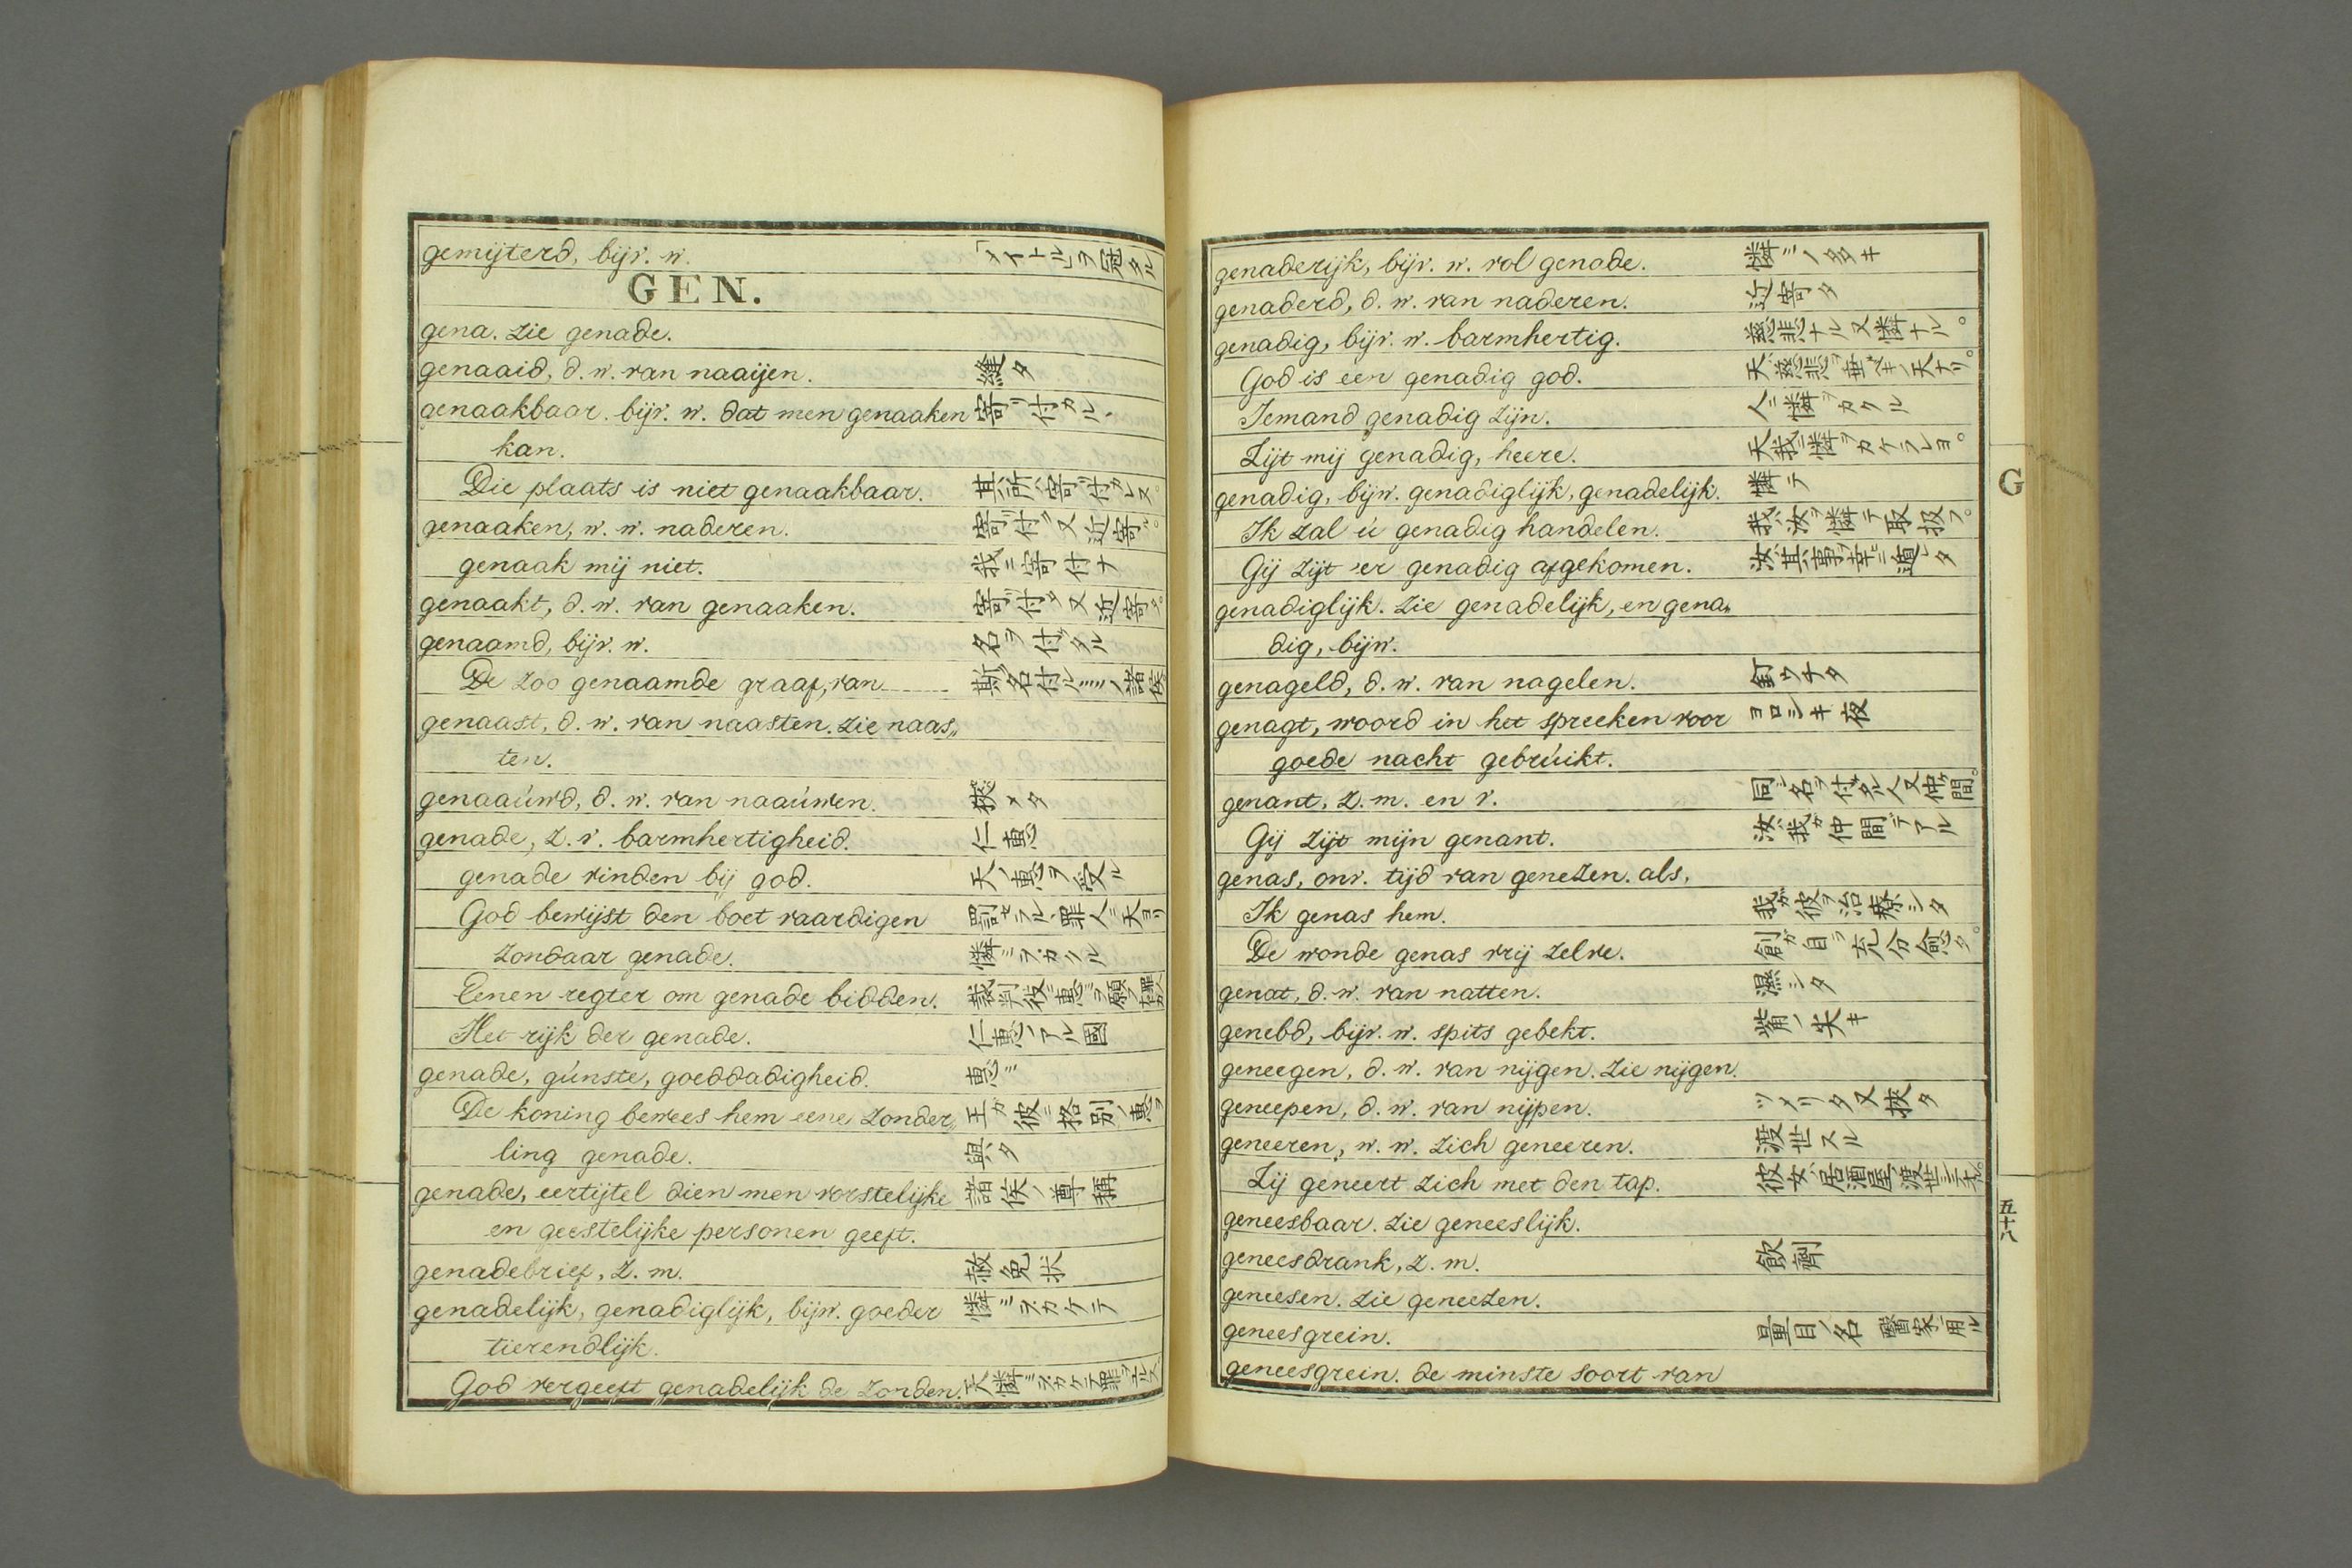 gemijterd, bijv. w. 「メイトル」ヲ冠タル
GEN.
gena. zie genade.
genaaid, d. w. van naaijen.縫タ
genaakbaar. bijv. w. dat men genaaken 寄リ付カル、
kan.
Die plaats is niet genaakbaar. 其所ハ寄リ付カレヌ。
genaaken, w. w. naderen. 寄リ付ク又近寄ル。
genaak mij niet. 我ニ寄付ナ
genaakt, d. w. van genaaken. 寄リ付タ又近寄タ。
genaamd, bijv. w. 名ヲ付タル
De zoo genaamde graaf, van 斯ク名付ル〻〻ノ諸侯
genaast, d. w. van naasten. zie naas„
ten.
genaaúwd, d. w. van naaúwen. 狹メタ
genade, z. v. barmhertigheid. 仁惠
genade vinden bij god. 天ノ惠ヲ受ル
God bewijst den boet vaardigen 罰セラル、罪人ニ天ヨリ
zondaar genade. 憐ミヲカクル
Eenen regter om genade bidden. 裁判役ニ惠ミヲ願フ
Het rijk der genade. 仁惠ノアル國
genade, gúnste, goeddadigheid. 惠ミ
De koning bewees hem eene zonder„ 王ガ彼ニ格別ノ惠ヲ
ling genade. 與タ
genade, eertijtel dien men vorstelijke 諸侯ノ尊稱
en geestelijke personen geeft.
genadebrief, z. m. 赦免状
genadelijk, genadiglijk, bijw. goeder 憐ミヲカケテ
tierendlijk.
God vergeeft genadelijk de zonden. 天憐ミヲカケテ罪ヲユルス
genaderijk, bijv. w. vol genade. 憐ミノ多キ
genaderd, d. w. van naderen. 近寄タ
genadig, bijv. w. barmhertig. 慈悲ナル又憐ナル。
God is een genadig god. 天ハ慈悲ヲ垂ベキノ天ナリ。
Iemand genadig zijn. 人ニ憐ヲカクル
Zijt mij genadig, heere. 天我ニ憐ヲカケラレヨ。
genadig, bijw. genadiglijk, genadelijk. 憐テ
Ik zal ú genadig handelen. 我ハ汝ヲ憐テ取扱フ。
Gij zijt 'er genadig afgekomen. 汝ハ其事ヲ幸ニ遁レタ
genadiglijk. zie genadelijk, en gena„
dig, bijw.
genageld, d. w. van nagelen. 釘ウチタ
genagt, woord in het spreeken voor ヨロシキ夜
goede nacht gebrúikt.
genant, z. m. en v. 同シ名ヲ付タル人又仲ケ間。
Gij zijt mijn genant. 汝ハ我ガ仲間デアル
genas, onv. tijd van genezen. als,
Ik genas hem. 我ガ彼ヲ治療シタ
De wonde genas vrij zelve. 創ガ自ラ充分愈タ。
genat, d. w. van natten. 濕シタ
genebd, bijv. w. spits gebekt. 觜ノ尖キ
geneegen, d. w. van nijgen. zie nijgen.
geneepen, d. w. van nijpen. ツメリタ又挾タ
geneeren, w. w. zich geneeren. 渡世スル
Zij geneert zich met den tap. 彼女ハ居酒屋ヲ渡世ニシテオル。
geneesbaar. zie geneeslijk.
geneesdrank, z. m. 飲劑
geneesen. zie geneezen.
geneesgrein. 量目ノ名 醫家ニ用ル
geneesgrein. de minste soort van
G
五十八